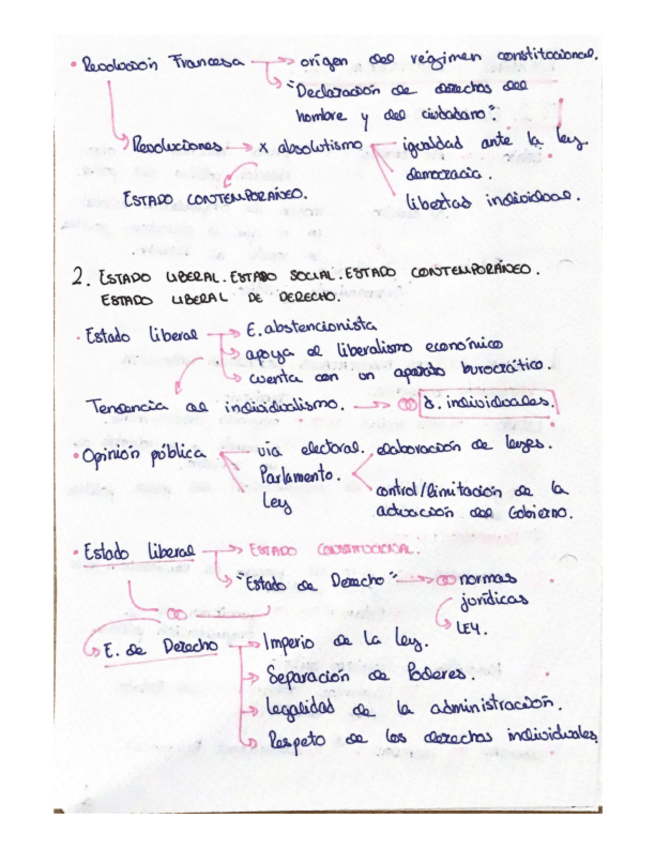 · Revolución Francesa → origen del régimen constitucional.
"Declaración de derechos del
hombre y del ciudadano".
Revoluciones → x absolutismo igualdad ante la ley
democracia.
ESTADO CONTEMPORÁNEO. libertad individual.
2. ESTADO LIBERAL. ESTADO SOCIAL. ESTADO CONTEMPORÁNEO.
ESTADO LIBERAL DE DERECHO.
· Estado liberal → E. abstencionista
→ apoya al liberalismo económico
→ cuenta con un aparato burocrático.
Tendencia al individualismo. → d. individuales.
· Opinión pública vía electoral. elaboración de leyes.
Parlamento.
Ley control/limitación de la
actuación del Gobierno.
· Estado liberal → ESTADO CONSTITUCIONAL.
"Estado de Derecho" → normas
jurídicas
LEY.
E. de Derecho → Imperio de la ley.
→ Separación de Poderes.
→ legalidad de la administración.
→ Respeto de los derechos individuales